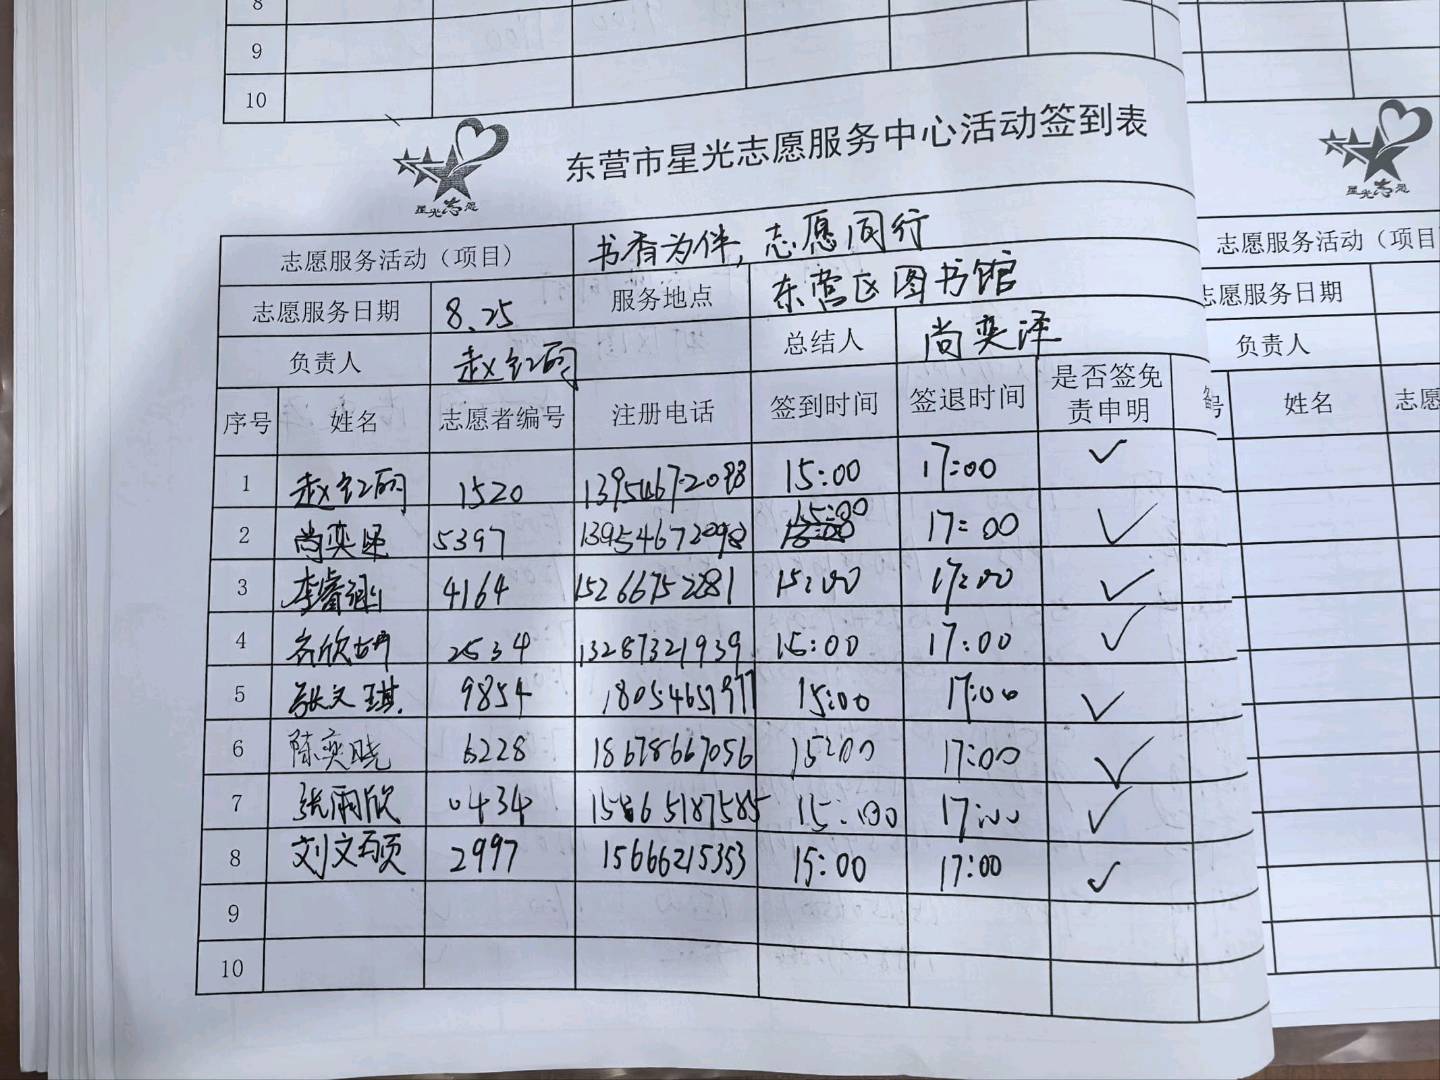 8
9
10
东营市星光志愿服务中心活动签到表
星光志愿
志愿服务活动（项目） 书香为伴，志愿同行
志愿服务日期 8.25 服务地点 东营区图书馆
负责人 赵红雨 总结人 尚奕泽
序号 姓名 志愿者编号 注册电话 签到时间 签退时间 是否签免责申明
1 赵红雨 1520 13954672098 15:00 17:00 ✓
2 尚奕泽 5397 13954672098 15:00 17:00 ✓
3 李睿涵 4164 15266752281 15:00 17:00 ✓
4 欣妍 2534 13287321939 15:00 17:00 ✓
5 张文琪 9854 18054651977 15:00 17:00 ✓
6 陈奕晓 6228 18678667056 15:00 17:00 ✓
7 张雨欣 0434 15865187585 15:00 17:00 ✓
8 刘文硕 2997 15666215353 15:00 17:00 ✓
9
10
星光志愿
志愿服务活动（项目
志愿服务日期
负责人
号 姓名 志愿